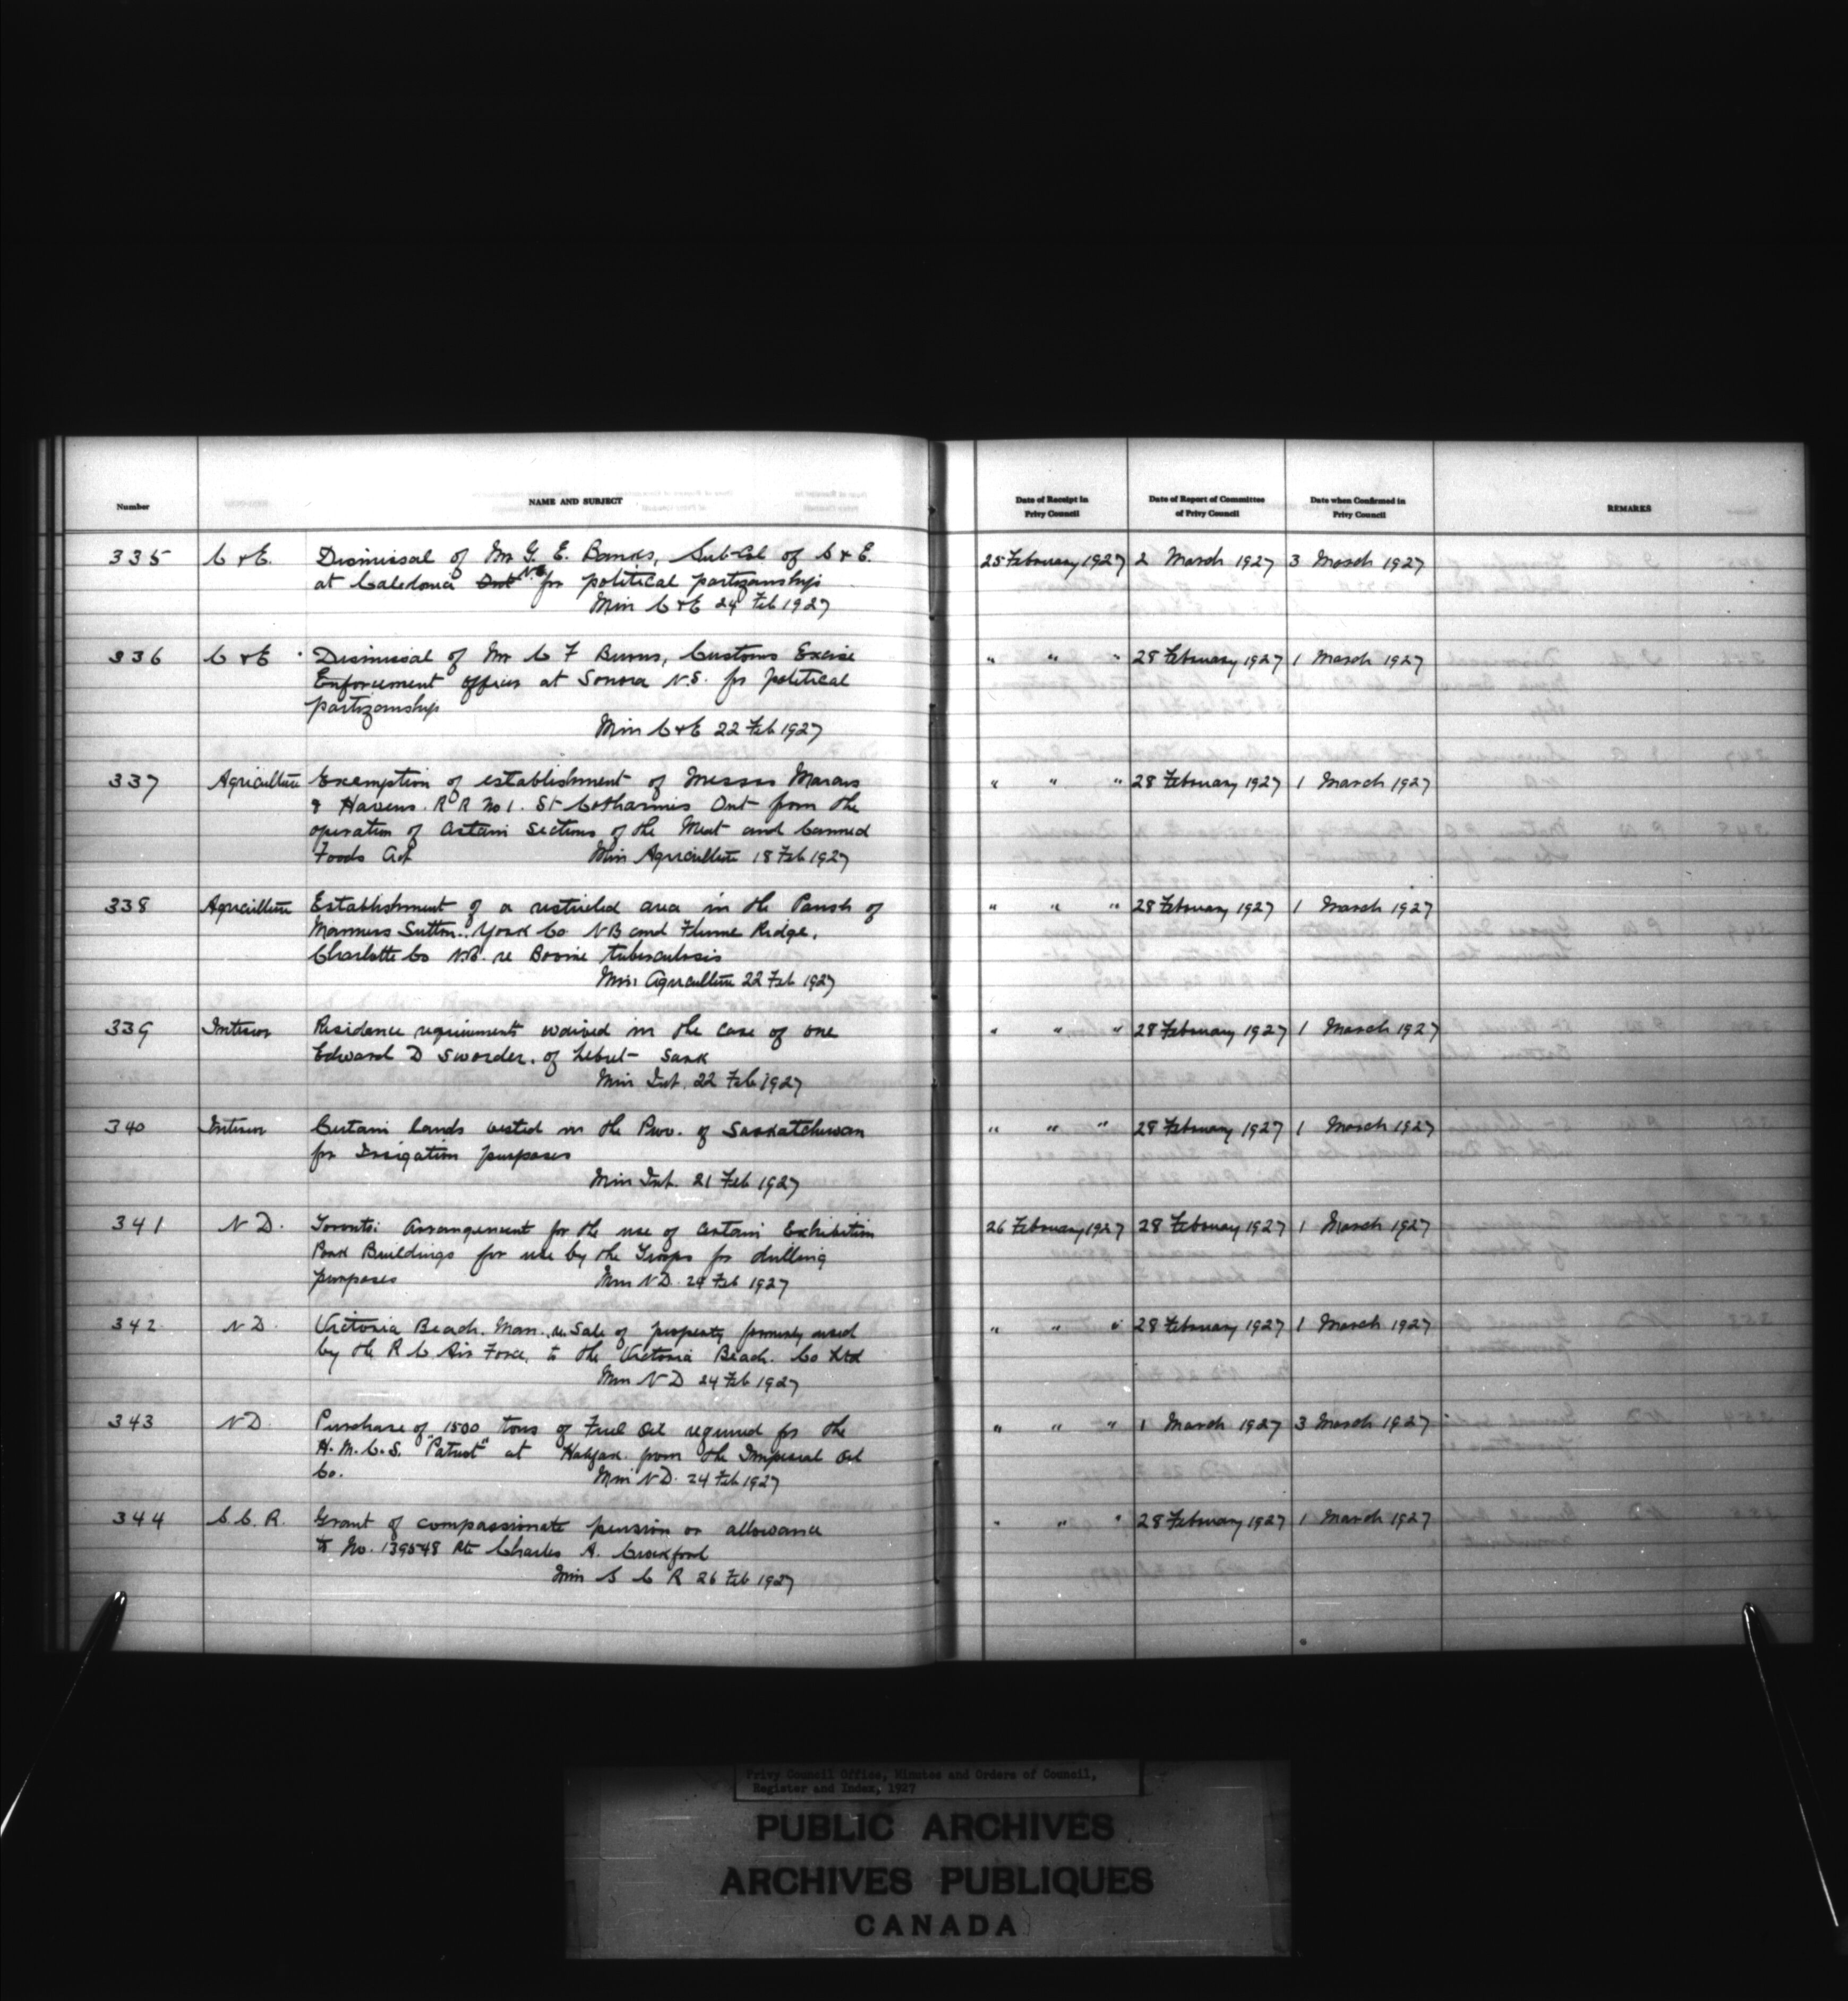 Number
NAME AND SUBJECT
Date of Receipt in Privy Council
Date of Report of Committee of Privy Council
Date when Confirmed in Privy Council
REMARKS
335 C & E. Dismissal of Mr G. E. Banks, Sub-Col of C & E. 25 February 1927 2 March 1927 3 March 1927
at Caledonia Ont N.S. for political partizanship
Min C & E 24 Feb 1927
336 C & E Dismissal of Mr C F Burns, Customs Excise " " " 28 February 1927 1 March 1927
Enforcement officer at Sonora N.S. for political
partizanship
Min C & E 22 Feb 1927
337 Agriculture Exemption of establishment of Messrs Marcus " " " 28 February 1927 1 March 1927
& Havens. R R No 1. St Catharines Ont from the
operation of certain sections of the Meat and Canned
Foods Act Min Agriculture 18 Feb 1927
338 Agriculture Establishment of a restricted area in the Parish of " " " 28 February 1927 1 March 1927
Manners Sutton, York Co NB and Flume Ridge,
Charlotte Co N.B. re Bovine tuberculosis
Min Agriculture 22 Feb 1927
339 Interior Residence requirements waived in the case of one " " " 28 February 1927 1 March 1927
Edward D Sworder. of Lebret Sask
Min Int. 22 Feb 1927
340 Interior Certain lands vested in the Prov. of Saskatchewan " " " 28 February 1927 1 March 1927
for Irrigation purposes
Min Int. 21 Feb 1927
341 N D. Toronto: Arrangement for the use of certain Exhibition 26 February 1927 28 February 1927 1 March 1927
Park Buildings for use by the Troops for drilling
purposes Min N D. 24 Feb 1927
342 N D. Victoria Beach. Man. re Sale of property formerly used " " " 28 February 1927 1 March 1927
by the R C Air Force, to the Victoria Beach. Co Ltd
Min N D 24 Feb 1927
343 N D. Purchase of 1500 tons of Fuel Oil required for the " " " 1 March 1927 3 March 1927
H. M. C. S. "Patriot" at Halifax from the Imperial Oil
Co. Min N D. 24 Feb 1927
344 S. C. R. Grant of compassionate pension or allowance " " " 28 February 1927 1 March 1927
to No. 139548 Pte Charles A. Crockford
Min S C R 26 Feb 1927
Privy Council Office, Minutes and Orders of Council,
Register and Index, 1927
PUBLIC ARCHIVES
ARCHIVES PUBLIQUES
CANADA